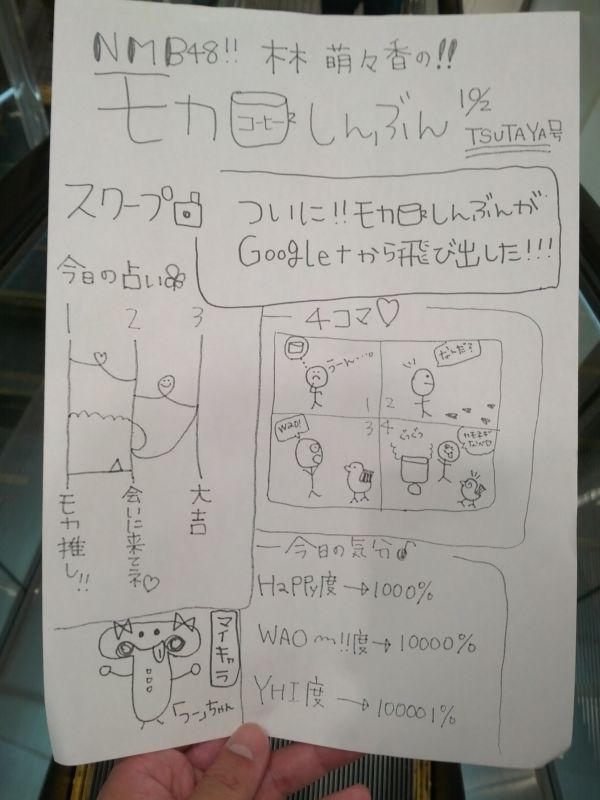 NMB48!! 林 萌々香の!!
モカコーヒーしんぶん 10/2 TSUTAYA号
スクープ
ついに!!モカしんぶんが
Google+から飛び出した!!!
今日の占い
1 2 3
モカ推し!!
会いに来てネ♡
大吉
4コマ♡
うーん…。
1
なんだ?
2
WAO!
3
ぐつぐつ
カモネギなべ
4
今日の気分♪
HaPPy度→1000%
WAO〜!!度→10000%
YHI度→100001%
マイキャラ
「つー」ちゃん